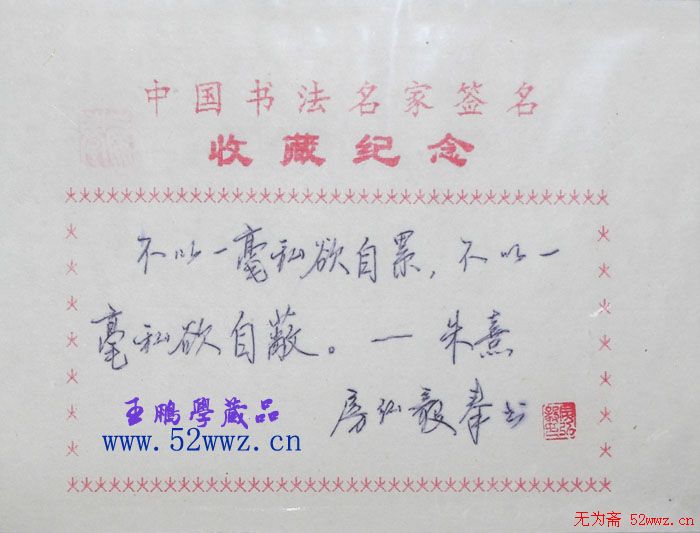 中国书法名家签名
收藏纪念
不以一毫私欲自累，不以一
毫私欲自蔽。— 朱熹
房弘毅奉书
王鹏學藏品
www.52wwz.cn
无为斋 52wwz.cn